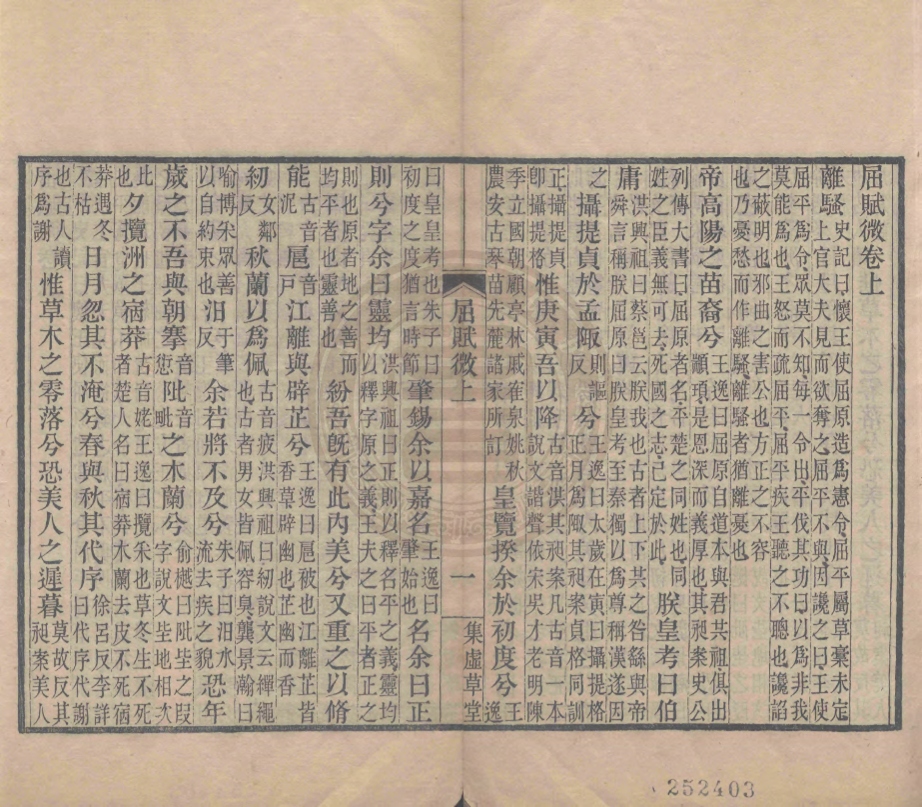 屈賦微卷上
離騷史記曰懷王使屈原造爲憲令屈平屬草藁未定上官大夫見而欲奪之屈平不與因讒之曰王使
屈平爲令眾莫不知每一令出平伐其功曰以爲非我莫能爲也王怒而疏屈平屈平疾王聽之不聰也讒諂
之蔽明也邪曲之害公也方正之不容也乃憂愁而作離騷離騷者猶離憂也
帝高陽之苗裔兮王逸曰屈原自道本與君共祖俱出顓頊是恩深而義厚也其昶案史公
列傳大書曰屈原者名平楚之同姓也同姓之臣義無可去死國之志已定於此朕皇考曰伯
庸洪興祖曰蔡邕云朕我也古者上下共之咎繇與帝舜言稱朕屈原曰朕皇考至秦獨以爲尊稱漢遂因
之攝提貞於孟陬則謳反兮王逸曰太歲在寅曰攝提格正月爲陬其昶案貞格同訓
正攝提貞卽攝提格惟庚寅吾以降古音洪其昶案凡古音一本說文諧聲依宋吳才老明陳
季立國朝顧亭林戚隺泉姚秋農安古琴苗先麓諸家所訂皇覽揆余於初度兮王逸
屈賦微上 一 集虛草堂
曰皇皇考也朱子曰初度之度猶言時節肇錫余以嘉名王逸曰肇始也名余曰正
則兮字余曰靈均洪興祖曰正則以釋名平之義靈均以釋字原之義王夫之曰平者正之
則也原者地之善而均平者也靈善也紛吾旣有此內美兮又重之以脩
能古音泥扈音戶江離與辟芷兮王逸曰扈被也江離芷皆香草辟幽也芷幽而香
紉女鄰反秋蘭以爲佩古音疲洪興祖曰紉說文云繟繩也古者男女皆佩容臭龔景瀚曰
喻博采眾善以自約束也汨于筆反余若將不及兮朱子曰汨水流去疾之貌恐年
歲之不吾與朝搴音愆阰音毗之木蘭兮俞樾曰阰坒之叚字說文坒地相次
比也夕攬洲之宿莽古音姥王逸曰攬采也草冬生不死者楚人名曰宿莽木蘭去皮不死宿
莽遇冬不枯日月忽其不淹兮春與秋其代序徐呂反李詳曰代序代謝
也古人讀序爲謝惟草木之零落兮恐美人之遲暮莫故反其昶案美人
252403